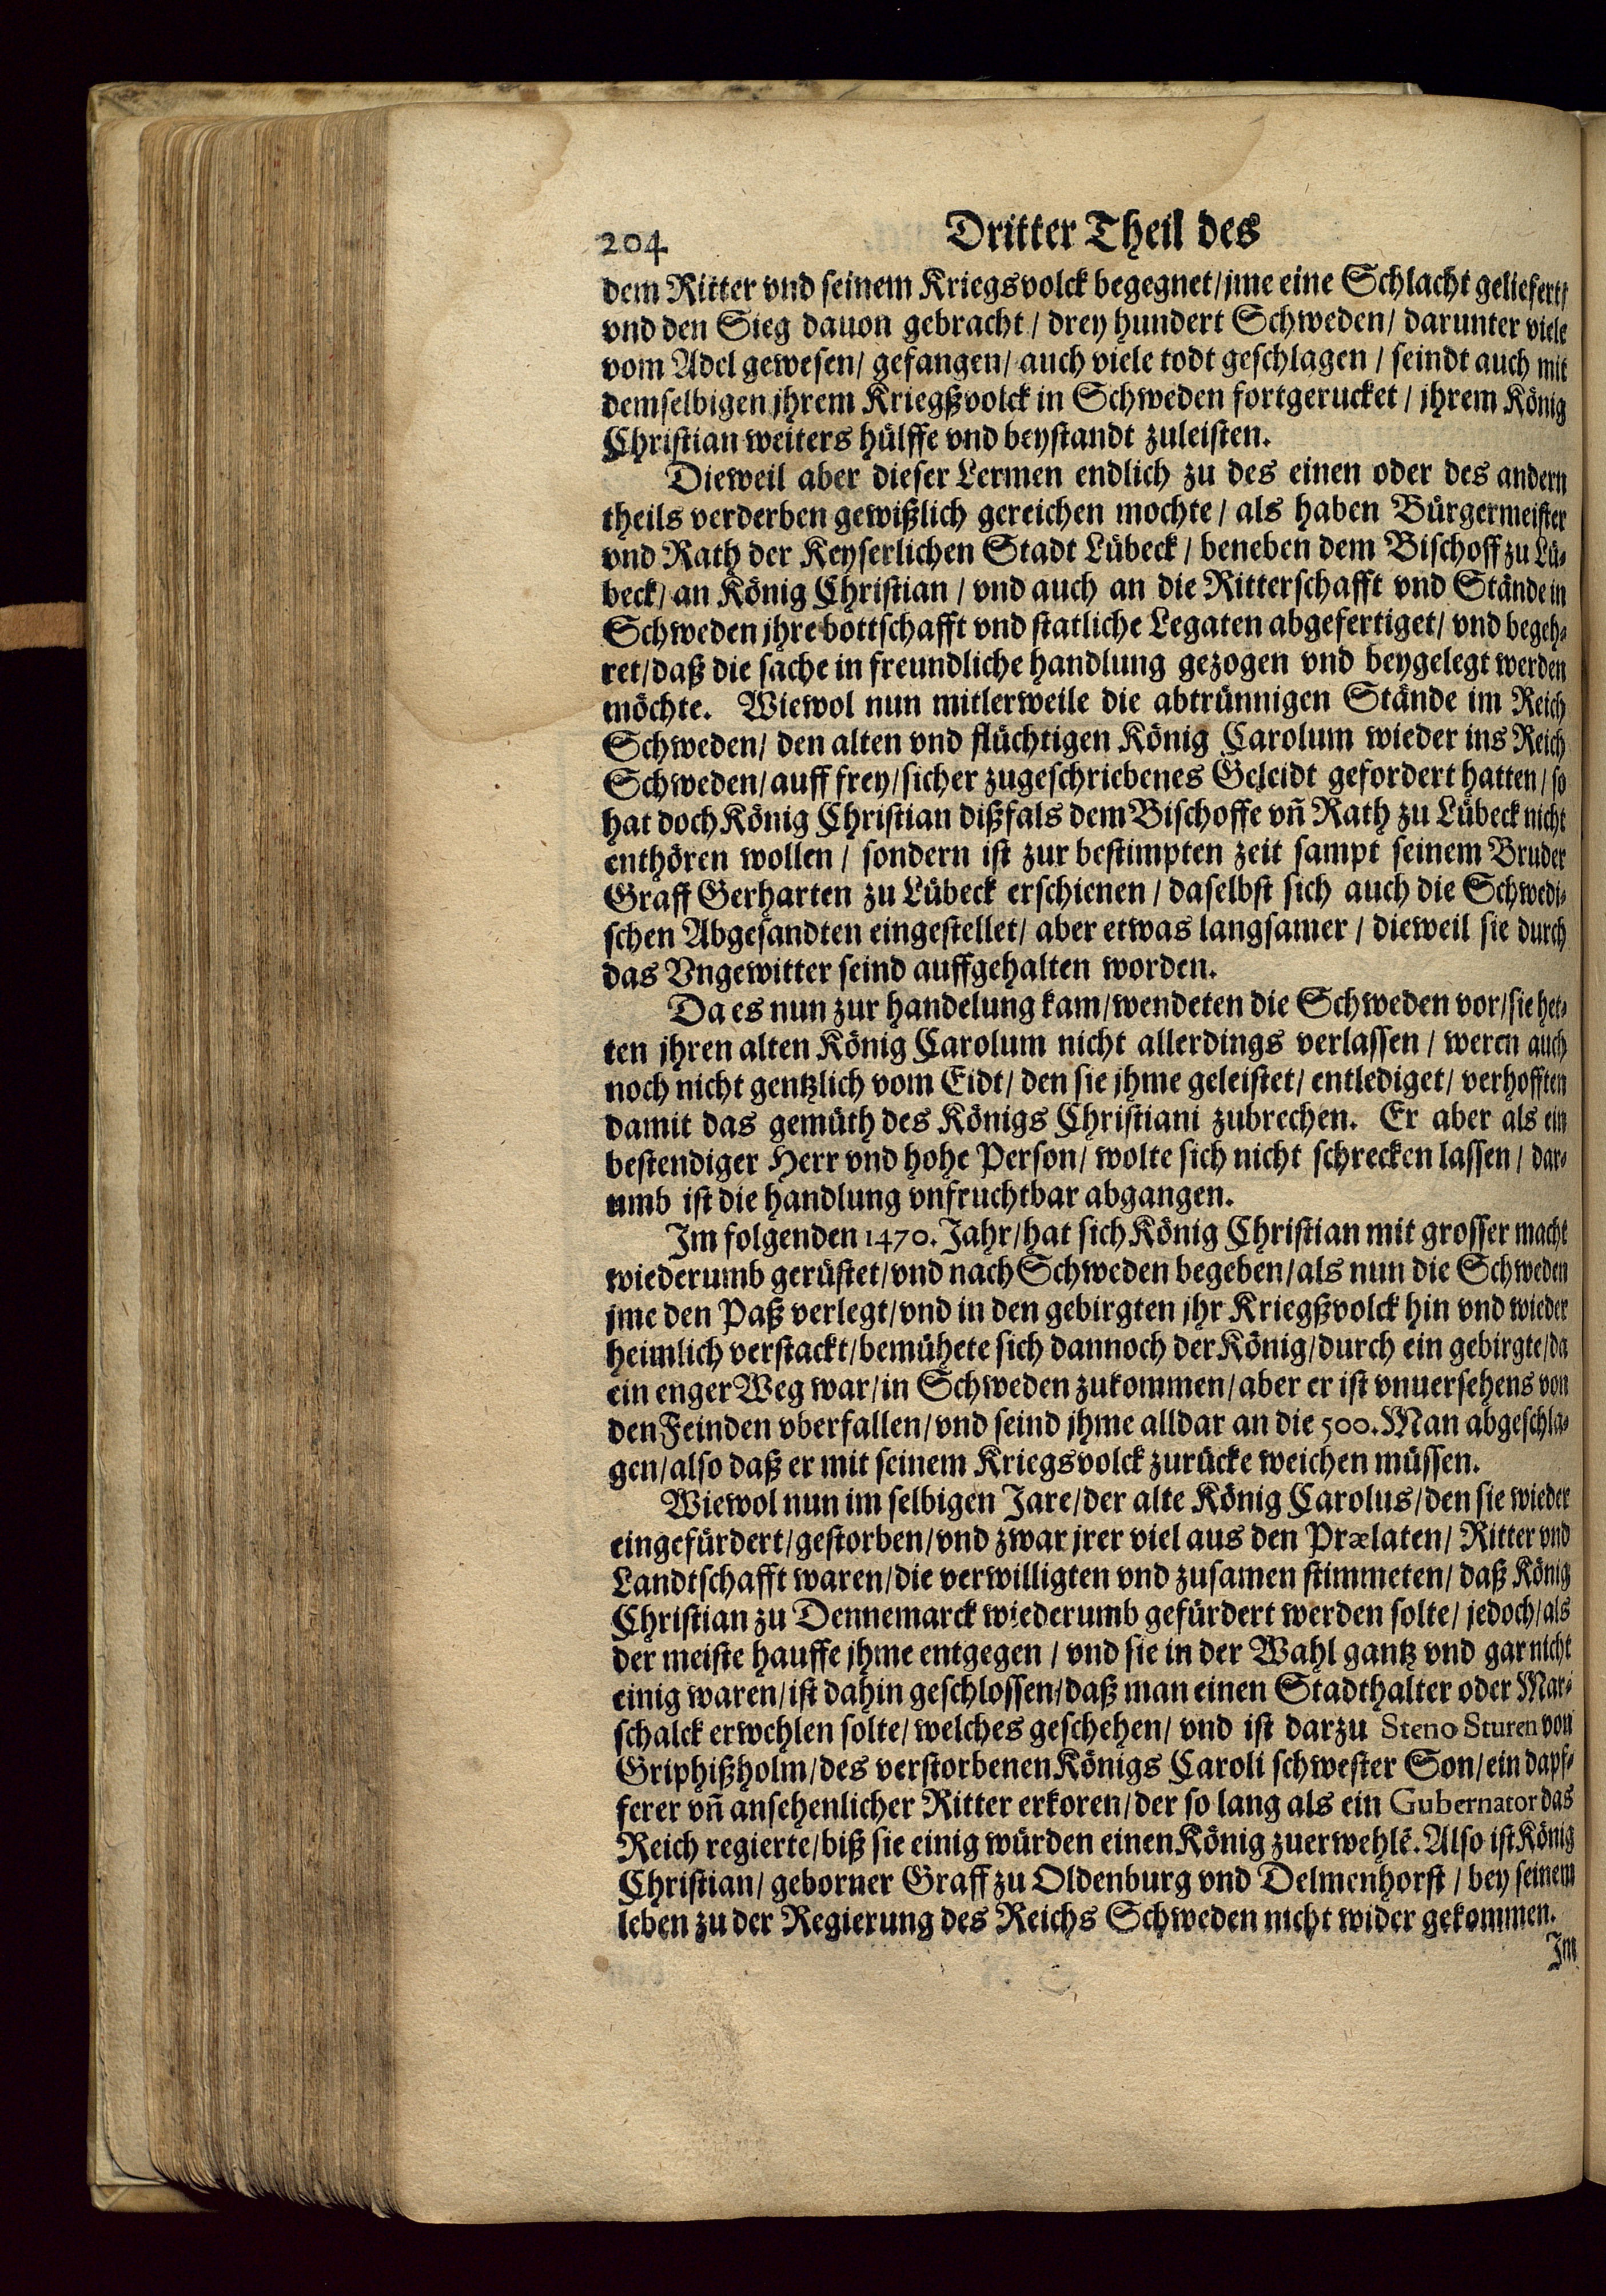 204 Dritter Theil des
dem Ritter vnd seinem Kriegsvolck begegnet/ jme eine Schlacht geliefert/
vnd den Sieg dauon gebracht / drey hundert Schweden/ darunter viele
vom Adel gewesen/ gefangen/ auch viele todt geschlagen / seindt auch mit
demselbigen jhrem Kriegßvolck in Schweden fortgerucket / jhrem König
Christian weiters hülffe vnd beystandt zuleisten.
Dieweil aber dieser Lermen endlich zu des einen oder des andern
theils verderben gewißlich gereichen mochte / als haben Bürgermeister
vnd Rath der Keyserlichen Stadt Lübeck / beneben dem Bischoff zu Lü-
beck/ an König Christian / vnd auch an die Ritterschafft vnd Stände in
Schweden jhre bottschafft vnd statliche Legaten abgefertiget/ vnd begeh-
ret/ daß die sache in freundliche handlung gezogen vnd beygelegt werden
möchte. Wiewol nun mitlerweile die abtrünnigen Stände im Reich
Schweden/ den alten vnd flüchtigen König Carolum wieder ins Reich
Schweden/ auff frey/ sicher zugeschriebenes Geleidt gefordert hatten/ so
hat doch König Christian dißfals dem Bischoffe vñ Rath zu Lübeck nicht
enthören wollen / sondern ist zur bestimpten zeit sampt seinem Bruder
Graff Gerharten zu Lübeck erschienen / daselbst sich auch die Schwedi-
schen Abgesandten eingestellet/ aber etwas langsamer / dieweil sie durch
das Vngewitter seind auffgehalten worden.
Da es nun zur handelung kam/ wendeten die Schweden vor/ sie het-
ten jhren alten König Carolum nicht allerdings verlassen / weren auch
noch nicht gentzlich vom Eidt/ den sie jhme geleistet/ entlediget/ verhofften
damit das gemüth des Königs Christiani zubrechen. Er aber als ein
bestendiger Herr vnd hohe Person/ wolte sich nicht schrecken lassen / dar-
umb ist die handlung vnfruchtbar abgangen.
Im folgenden 1470. Jahr/ hat sich König Christian mit grosser macht
wiederumb gerüstet/ vnd nach Schweden begeben/ als nun die Schweden
jme den Paß verlegt/ vnd in den gebirgten jhr Kriegßvolck hin vnd wieder
heimlich verstackt/ bemühete sich dannoch der König/ durch ein gebirgte/ da
ein enger Weg war/ in Schweden zukommen/ aber er ist vnuersehens von
den Feinden vberfallen/ vnd seind jhme alldar an die 500. Man abgeschla-
gen/ also daß er mit seinem Kriegsvolck zurücke weichen müssen.
Wiewol nun im selbigen Jare/ der alte König Carolus/ den sie wieder
eingefürdert/ gestorben/ vnd zwar jrer viel aus den Prælaten/ Ritter vnd
Landtschafft waren/ die verwilligten vnd zusamen stimmeten/ daß König
Christian zu Dennemarck wiederumb gefürdert werden solte/ jedoch/ als
der meiste hauffe jhme entgegen / vnd sie in der Wahl gantz vnd gar nicht
einig waren/ ist dahin geschlossen/ daß man einen Stadthalter oder Mar-
schalck erwehlen solte/ welches geschehen/ vnd ist darzu Steno Sturen von
Griphißholm/ des verstorbenen Königs Caroli schwester Son/ ein dapf-
ferer vñ ansehenlicher Ritter erkoren/ der so lang als ein Gubernator das
Reich regierte/ biß sie einig würden einen König zuerwehlẽ. Also ist König
Christian/ geborner Graff zu Oldenburg vnd Delmenhorst / bey seinem
leben zu der Regierung des Reichs Schweden nicht wider gekommen.
Im